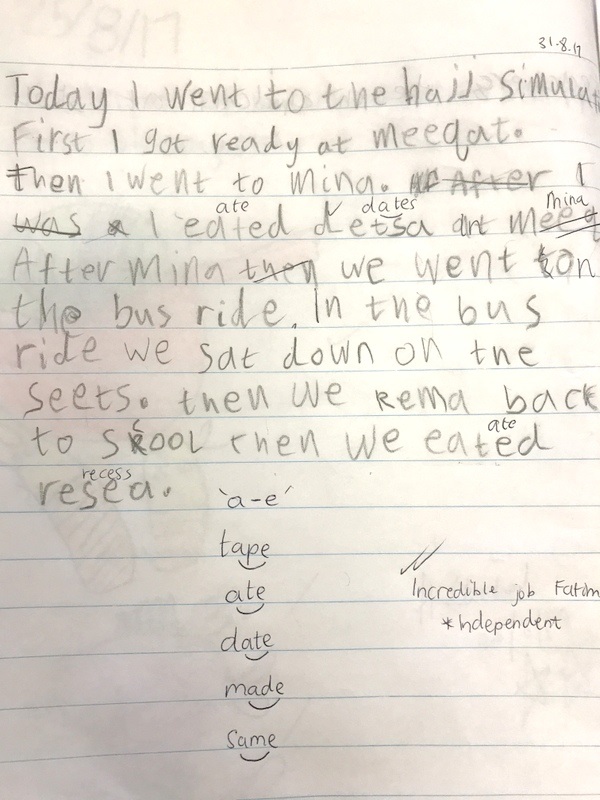 31.8.17
Today I went to the hajj Simulat
First I got ready at meeqat.
then I went to mina. After I
ate dates Mina
was I eated detsa at meet
After mina then we went ton
the bus ride. In the bus
ride we sat down on the
seets. then we kema back
ate
to skool then we eated
recess
resea.
'a-e'
tape
ate
Incredible job Fatim
date
*Independent
made
same